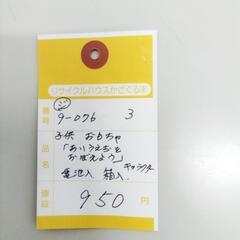 リサイクルハウスかざぐるま
ジ
番号 9-076 3
品名 子供 おもちゃ
「あいうえおを
おぼえよう」キャラクター
電池入 箱入.
値段 950円